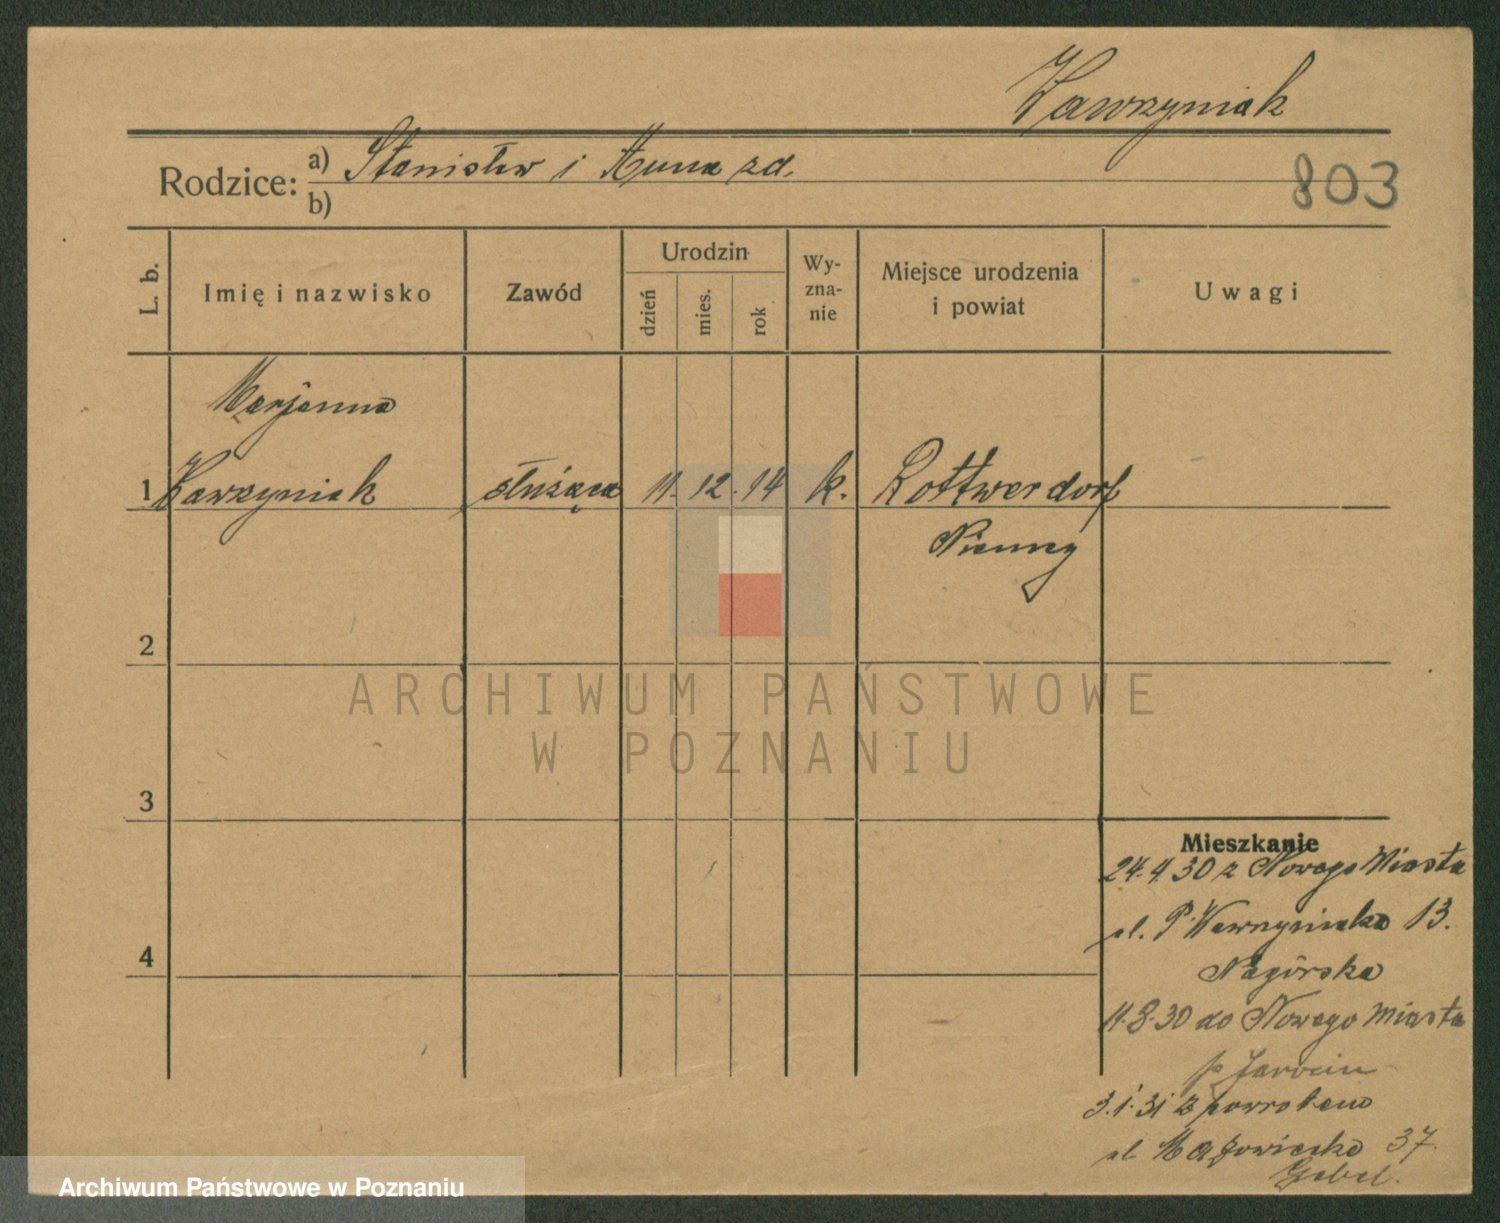 Wawrzyniak
Rodzice: a) Stanisław i Anna zd.
b)
803
L. b.
Imię i nazwisko
Zawód
Urodzin
dzień
mies.
rok
Wy-
zna-
nie
Miejsce urodzenia
i powiat
Uwagi
Marjanna
1 Wawrzyniak służąca 11. 12. 14 k. Rottwerdorf
Niemcy
2
ARCHIWUM PAŃSTWOWE
W POZNANIU
3
Mieszkanie
24.4.30 z Nowego Miasta
ul. P. Wawrzyniaka 13.
Nagórska
11.8.30 do Nowego Miasta
p Jarocin
4
3.1.31 z powrotem
ul. Mazowiecka 37.
Gebel.
Archiwum Państwowe w Poznaniu